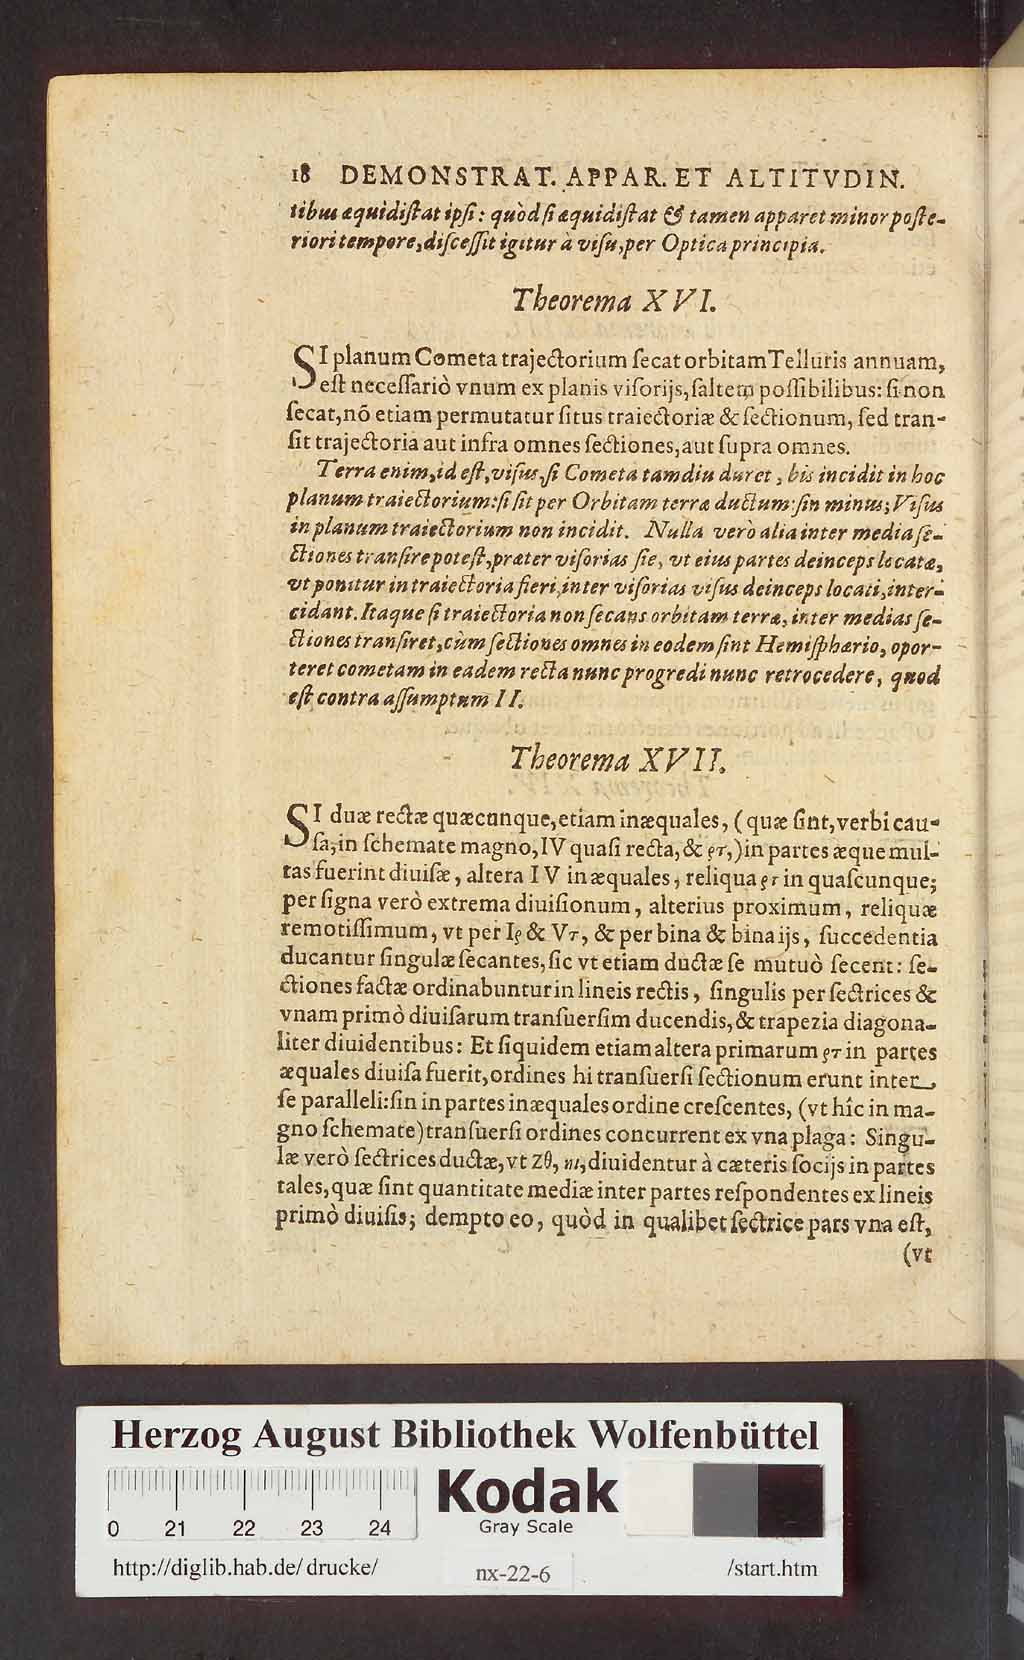 18 DEMONSTRAT. APPAR. ET ALTITVDIN.
tibus æquidiſtat ipſi: quòd ſi æquidiſtat & tamen apparet minor poſte-
riori tempore, diſceſſit igitur à viſu, per Optica principia.
Theorema XVI.
SI planum Cometa trajectorium ſecat orbitam Telluris annuam,
eſt neceſſariò vnum ex planis viſorijs, ſaltem poſſibilibus: ſi non
ſecat, nō etiam permutatur ſitus traiectoriæ & ſectionum, ſed tran-
ſit trajectoria aut infra omnes ſectiones, aut ſupra omnes.
Terra enim, id eſt, viſus, ſi Cometa tamdiu duret, bis incidit in hoc
planum traiectorium: ſi ſit per Orbitam terræ ductum: ſin minus; Viſus
in planum traiectorium non incidit. Nulla verò alia inter media ſe-
ctiones tranſire poteſt, præter viſorias ſic, vt eius partes deinceps locatæ,
vt ponitur in traiectoria fieri, inter viſorias viſus deinceps locati, inter-
cidant. Itaque ſi traiectoria non ſecans orbitam terræ, inter medias ſe-
ctiones tranſiret, cùm ſectiones omnes in eodem ſint Hemiſphærio, opor-
teret cometam in eadem recta nunc progredi nunc retrocedere, quod
eſt contra aſſumptum II.
Theorema XVII.
SI duæ rectæ quæcunque, etiam inæquales, (quæ ſint, verbi cau-
ſa, in ſchemate magno, IV quaſi recta, & ςτ,) in partes æque mul-
tas fuerint diuiſæ, altera IV inæquales, reliqua ςτ in quaſcunque;
per ſigna verò extrema diuiſionum, alterius proximum, reliquæ
remotiſſimum, vt per Iς & Vτ, & per bina & bina ijs, ſuccedentia
ducantur ſingulæ ſecantes, ſic vt etiam ductæ ſe mutuò ſecent: ſe-
ctiones factæ ordinabuntur in lineis rectis, ſingulis per ſectrices &
vnam primò diuiſarum tranſuerſim ducendis, & trapezia diagona-
liter diuidentibus: Et ſiquidem etiam altera primarum ςτ in partes
æquales diuiſa fuerit, ordines hi tranſuerſi ſectionum erunt inter
ſe paralleli: ſin in partes inæquales ordine creſcentes, (vt hîc in ma-
gno ſchemate) tranſuerſi ordines concurrent ex vna plaga: Singu-
læ verò ſectrices ductæ, vt Zθ, diuidentur à cæteris ſocijs in partes
tales, quæ ſint quantitate mediæ inter partes reſpondentes ex lineis
primò diuiſis; dempto eo, quòd in qualibet ſectrice pars vna eſt,
(vt
Herzog August Bibliothek Wolfenbüttel
Kodak
Gray Scale
0 21 22 23 24
http://diglib.hab.de/drucke/ nx-22-6 /start.htm